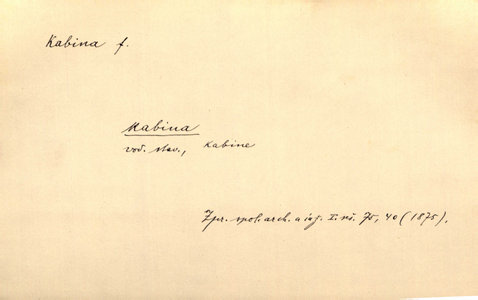 Kabina f.
Kabina
vod. stav., Kabine
Zpr. spol. arch. a inž. I. roč. 75, 40 (1875).